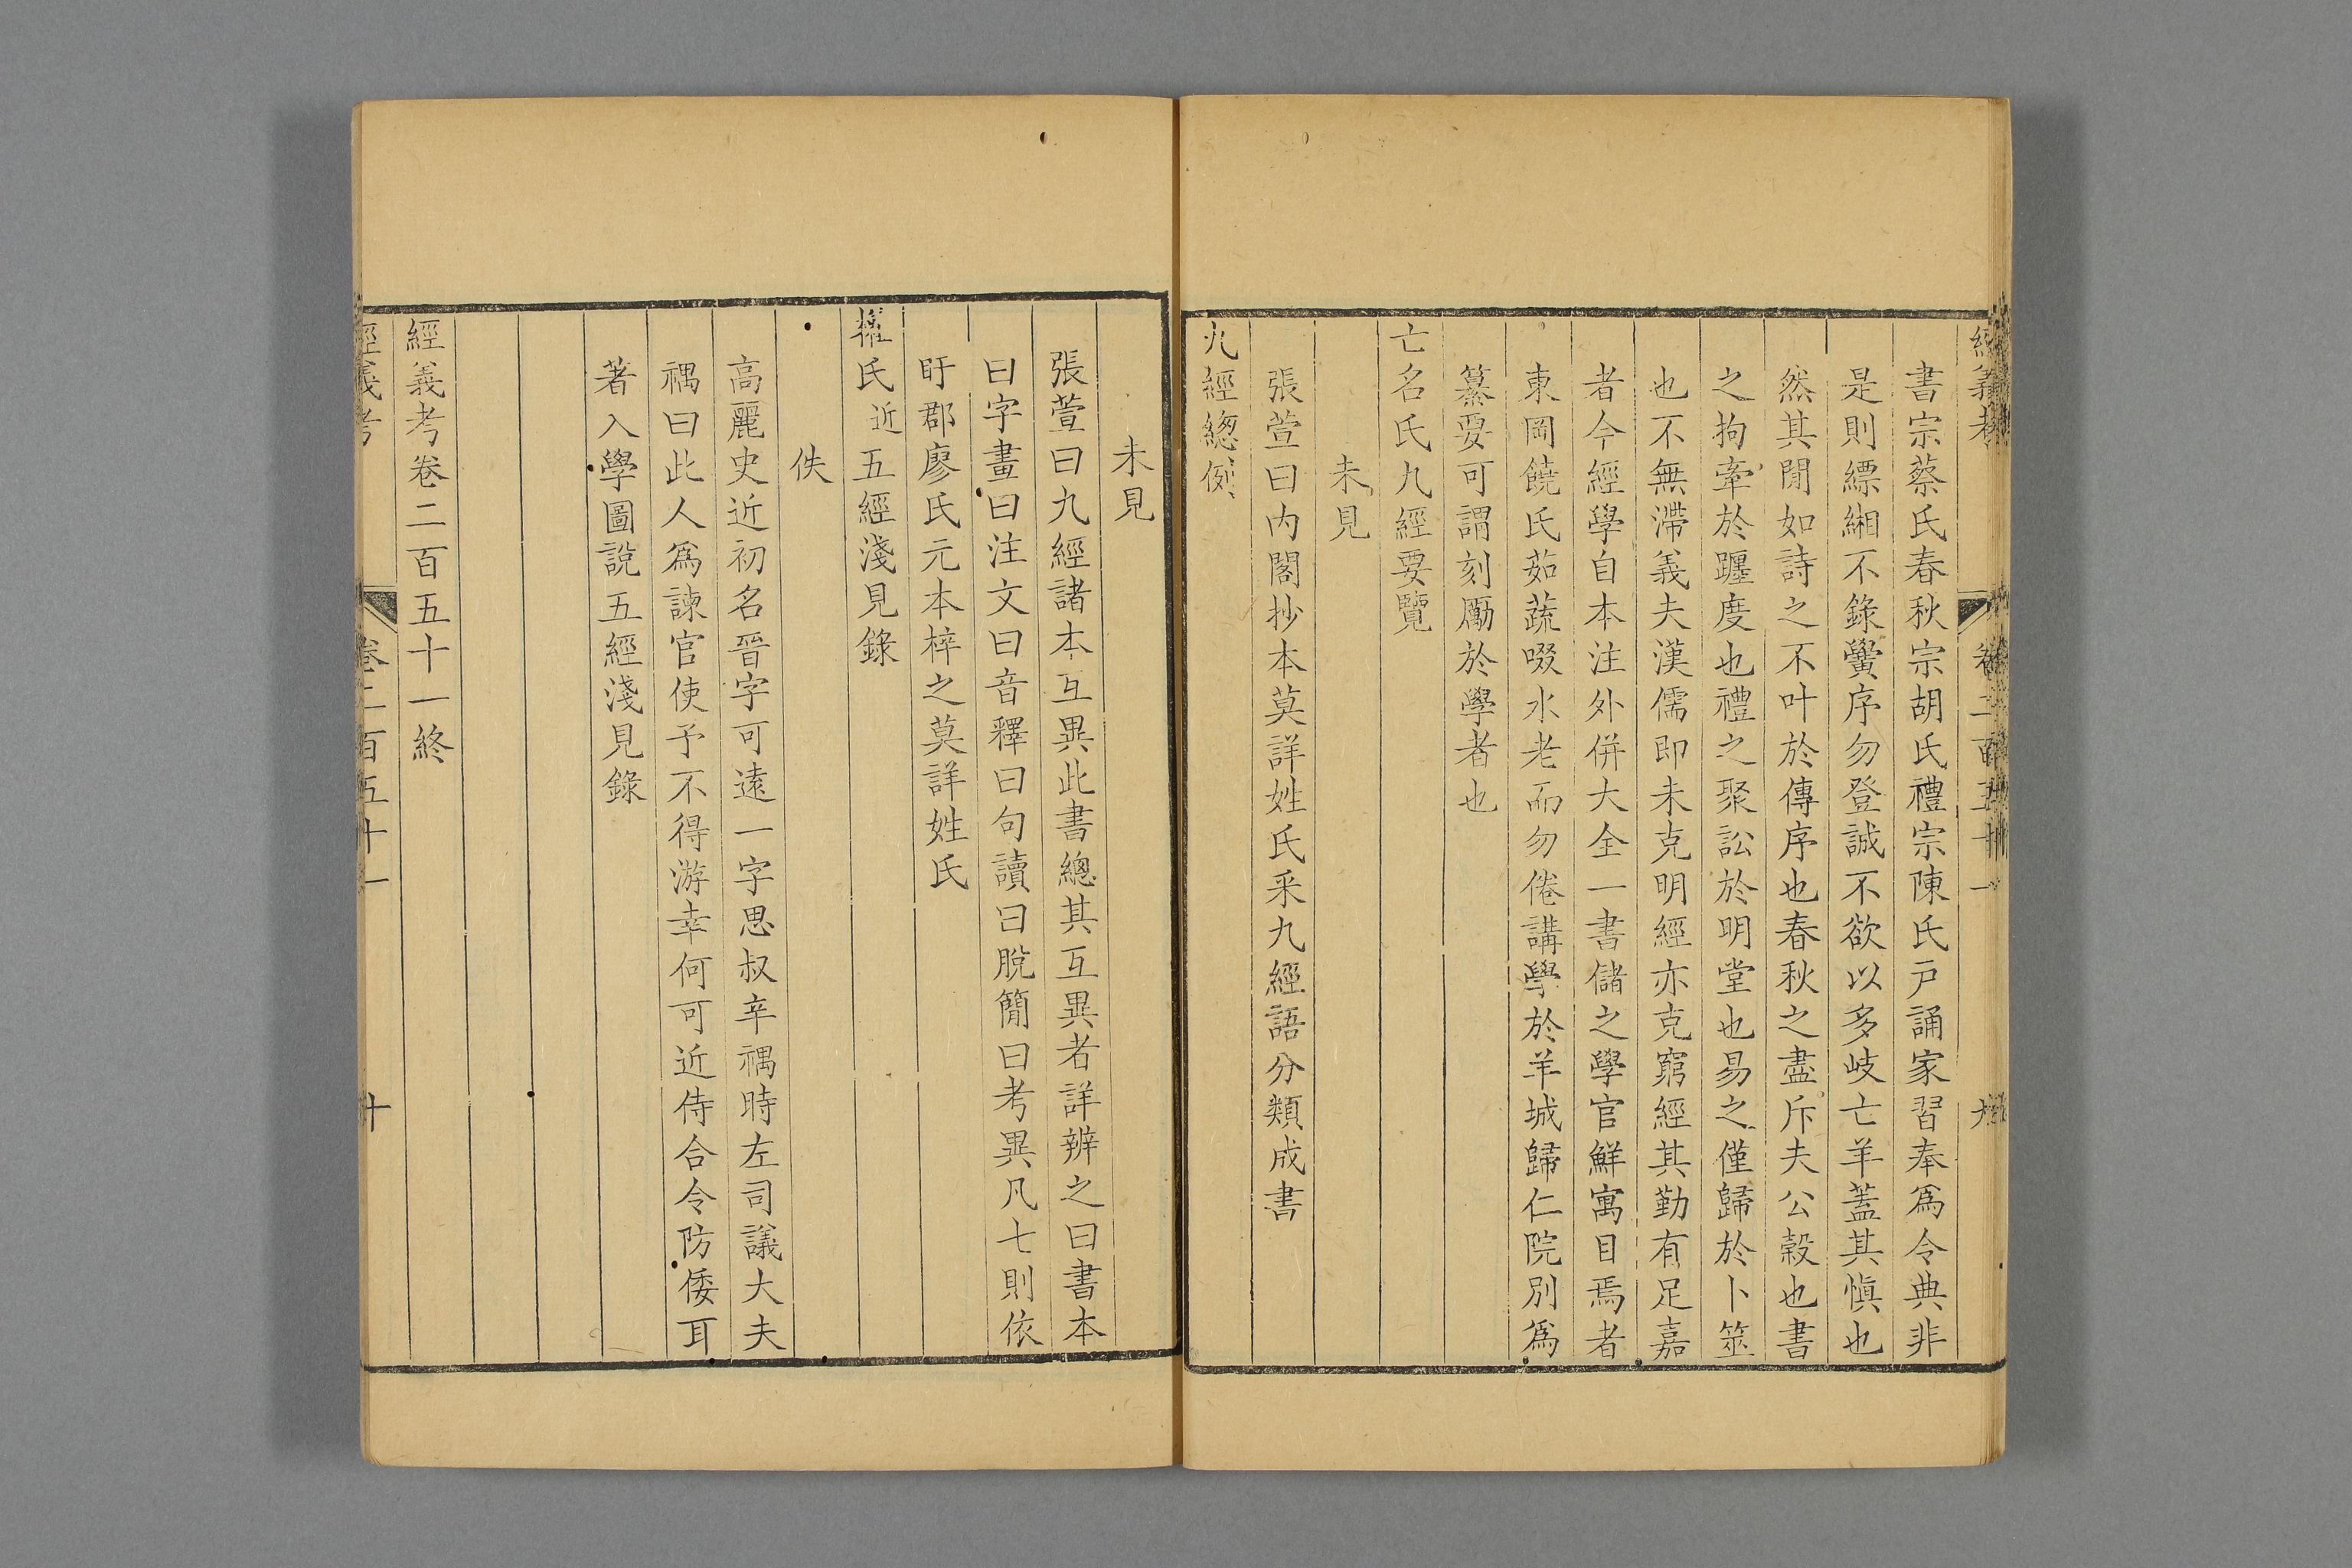 經義考
卷二百五十一
九
書宗蔡氏春秋宗胡氏禮宗陳氏戸誦家習奉爲令典非
是則縹緗不錄黌序勿登誠不欲以多岐亡羊蓋其愼也
然其閒如詩之不叶於傳序也春秋之盡斥夫公穀也書
之拘牽於躔度也禮之聚訟於明堂也易之僅歸於卜筮
也不無滯義夫漢儒即未克明經亦克窮經其勤有足嘉
者今經學自本注外併大全一書儲之學官鮮寓目焉者
東岡饒氏茹蔬啜水老而勿倦講學於羊城歸仁院別爲
纂要可謂刻厲於學者也
亡名氏九經要覽
未見
張萱曰内閣抄本莫詳姓氏采九經語分類成書
九經總例
未見
張萱曰九經諸本互異此書總其互異者詳辨之曰書本
曰字畫曰注文曰音釋曰句讀曰脫簡曰考異凡七則依
盱郡廖氏元本梓之莫詳姓氏
權氏近五經淺見錄
佚
高麗史近初名晉字可遠一字思叔辛禑時左司議大夫
禑曰此人爲諫官使予不得游幸何可近侍合令防倭耳
著入學圖說五經淺見錄
經義考卷二百五十一終
經義考
卷二百五十一
十